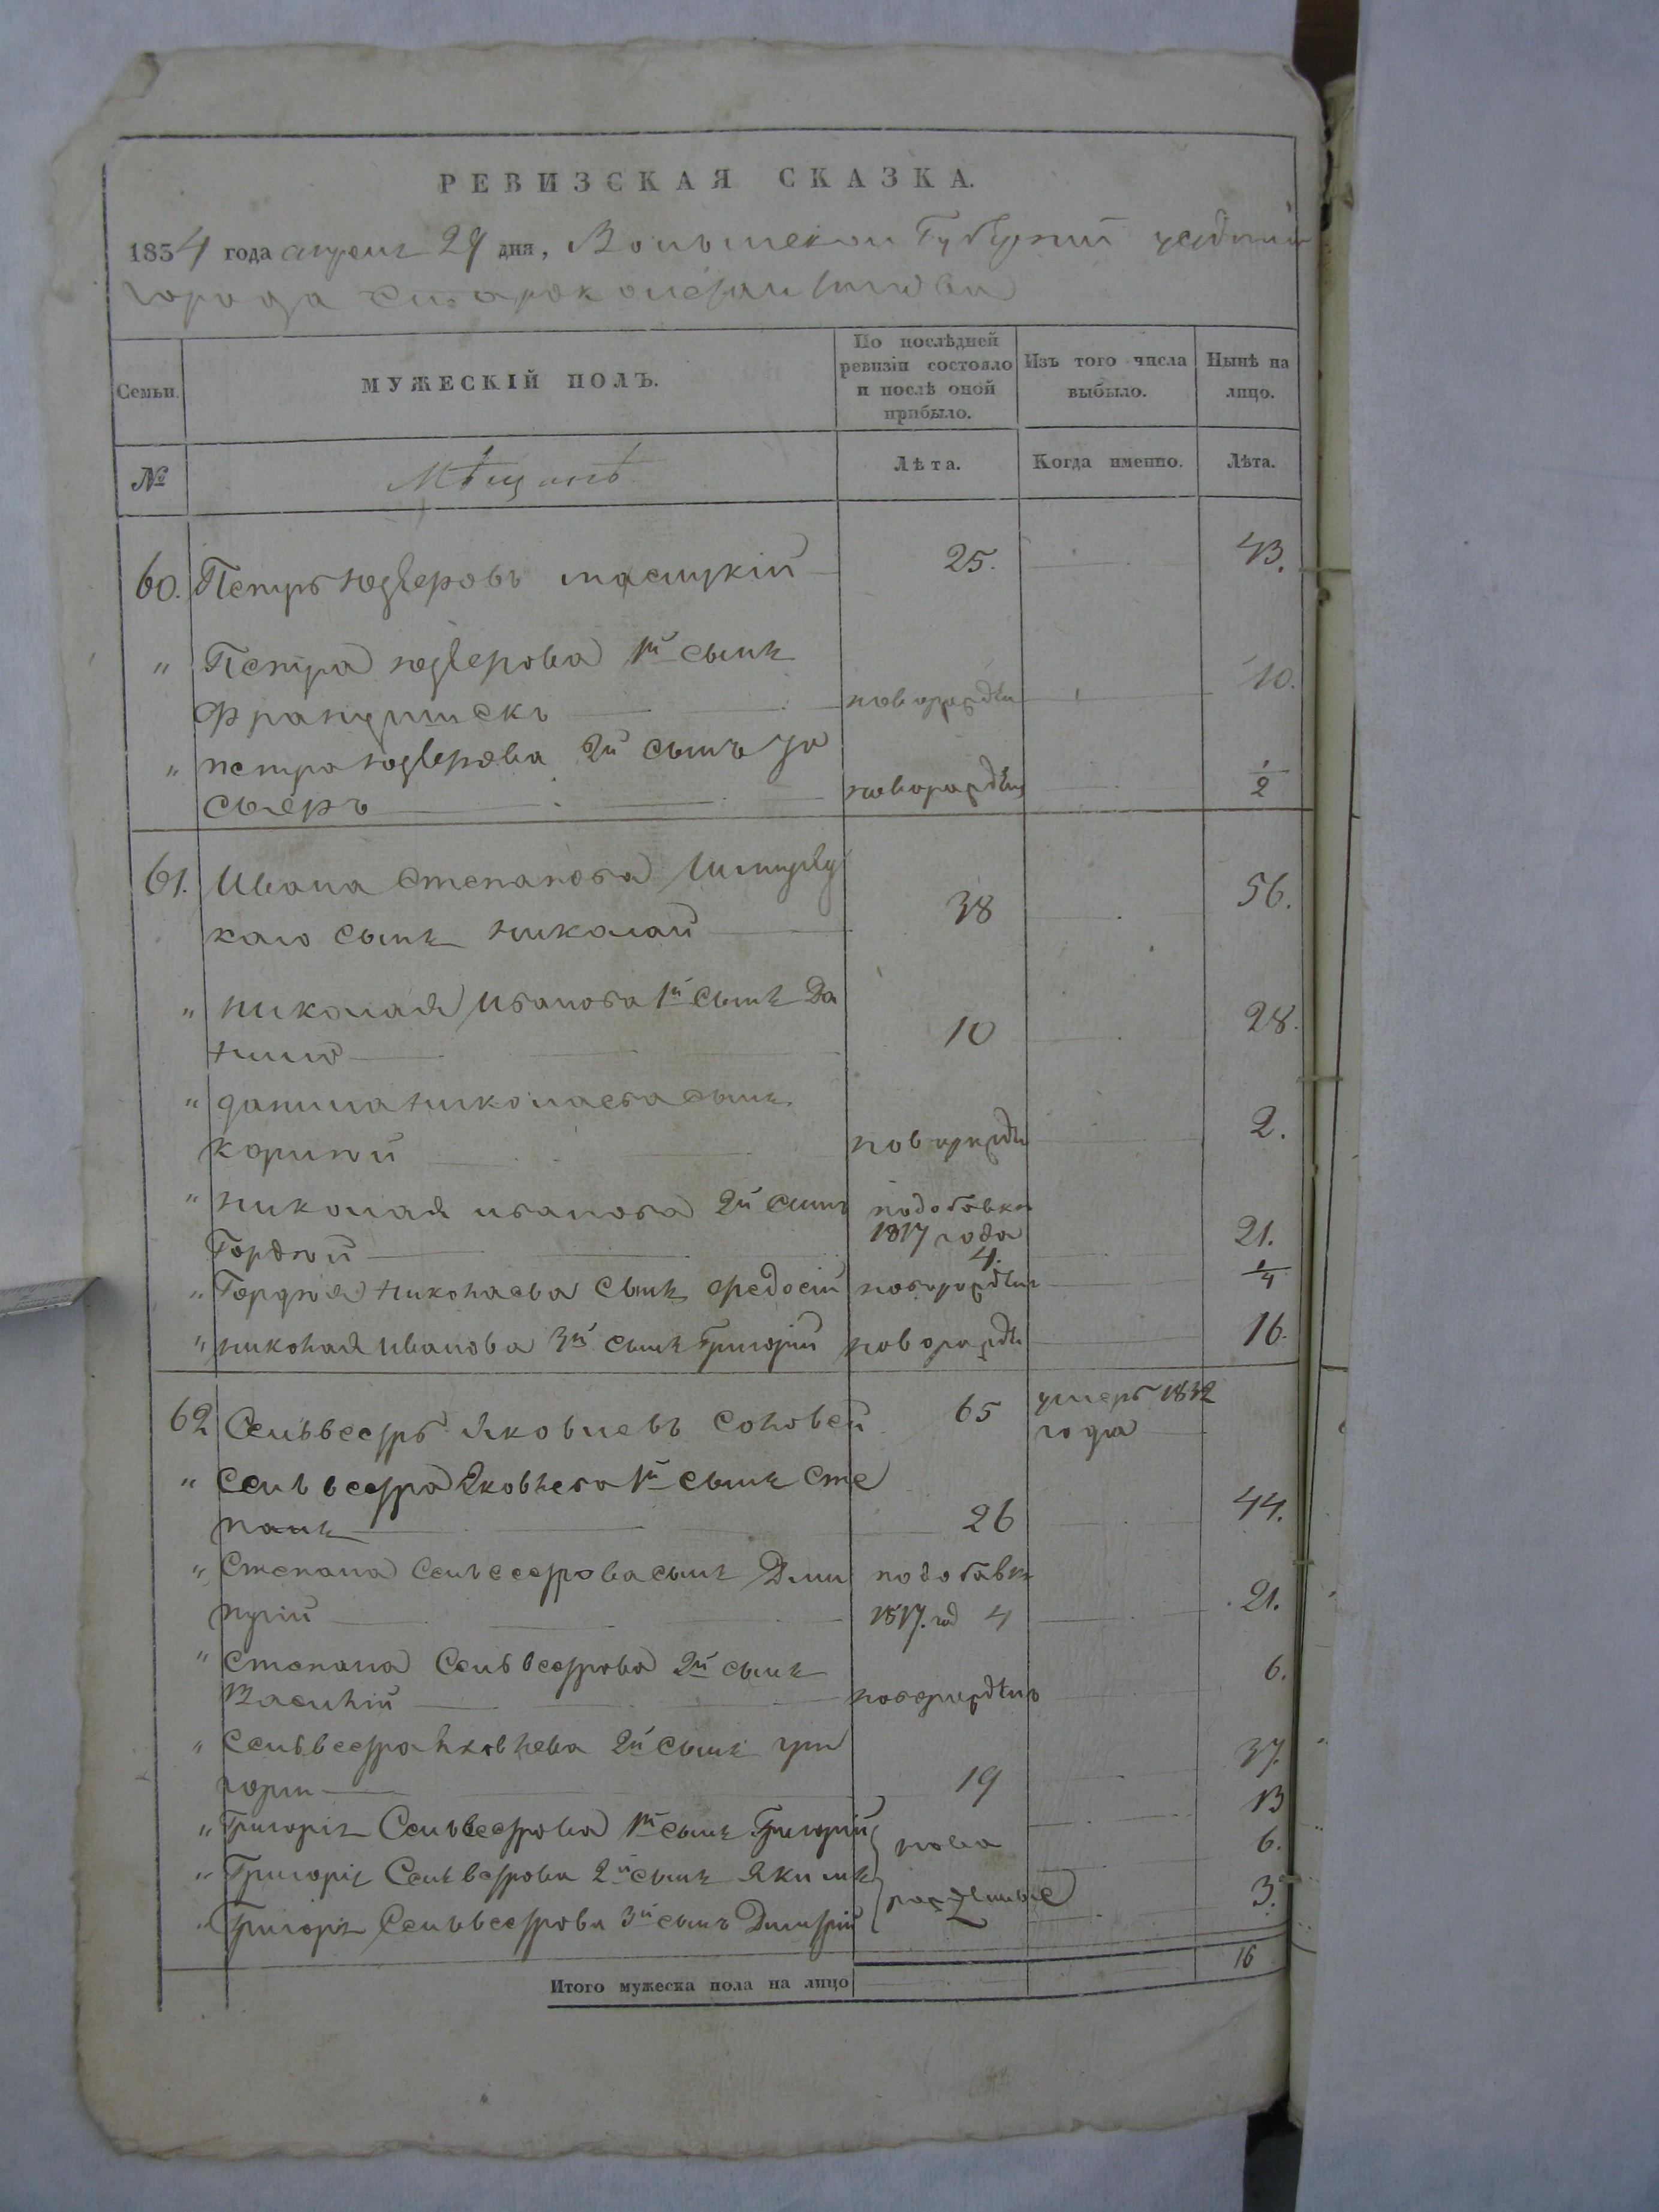 РЕВИЗСКАЯ СКАЗКА.
1834 года апреля 29 дня, Волынской Губернии уездного
города Староконстантинова
Семьи.
МУЖЕСКІЙ ПОЛЪ.
По послѣдней ревизіи состояло и послѣ оной прибыло.
Изъ того числа выбыло.
Нынѣ на лицо.
№
Мѣщанѣ
Лѣта.
Когда именно.
Лѣта.
60. Петръ 25. 43.
" Петра 1й сынъ
Францишекъ новорожден 10.
" петра 2й сынъ Ю
новорожден 1/2
61. Ивана Степанова
каго сынъ николай 38 56.
" николая Иванова 1й сынъ Да
нило 10 28.
" данила николаева сынъ
корнѣй новорожден 2.
" николая иванова 2й сынъ подобавки
1817 года
Гордѣй 4. 21.
" Гордѣя николаева сынъ федосій новорожден 1/4
" николая иванова 3й сынъ Григорій новорожде 16.
62 Сельвестръ Яковлевъ Соловей 65 умеръ 1832
года
" Сельвестра Яковлева 1й сынъ Сте
панъ 26 44.
" Степана Сельвестрова сынъ Дми подобавки
трій 1817. год 4 21.
" Степана Сельвестрова 2й сынъ
Василій новорожден 6.
" Сельвестра Яковлева 2й сынъ гри
горій 19 37.
" Григорія Сельвестрова 1й сынъ Григорій ново 13
" Григорія Сельвестрова 2й сынъ Якимъ рожденные 6.
" Григорія Сельвестрова 3й сынъ Дмитрій 3.
Итого мужеска пола на лицо 16